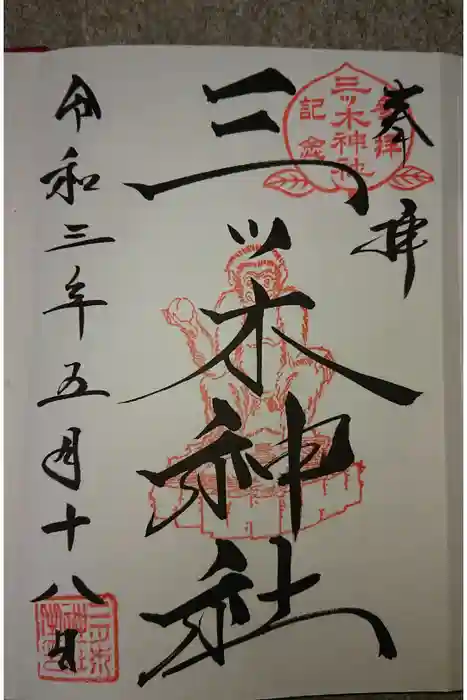 奉拝
三ッ木神社
参拝
三ッ木神社
記念
令和三年五月十八日